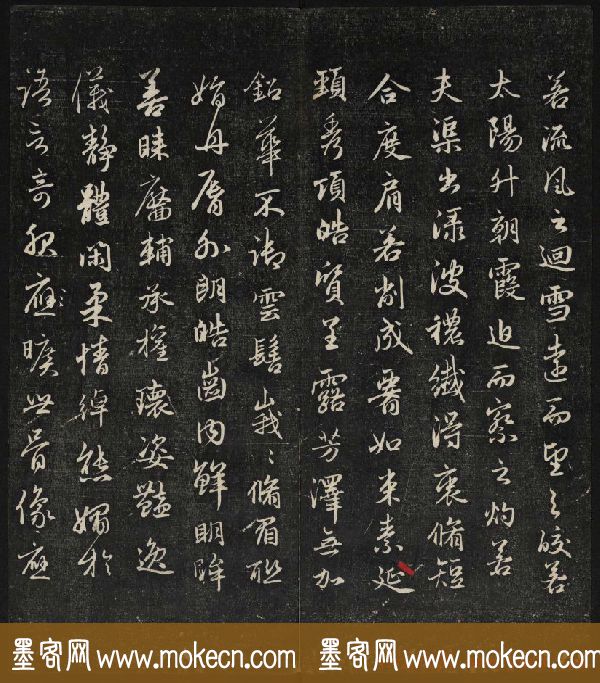 若流風之迴雪遠而望之皎若
太陽升朝霞迫而察之灼若
夫渠出渌波穠纖得衷脩短
合度肩若削成要如束素延
頸秀項皓質呈露芳澤無加
鉛華不御雲髻峩〻脩眉聯
娟丹脣外朗皓齒内鮮明眸
善睞靨輔承權瓌姿豔逸
儀靜體閑柔情綽態媚於
語言奇服應曠世骨像應
墨客网 www.mokecn.com 墨客网 www.mokecn.com